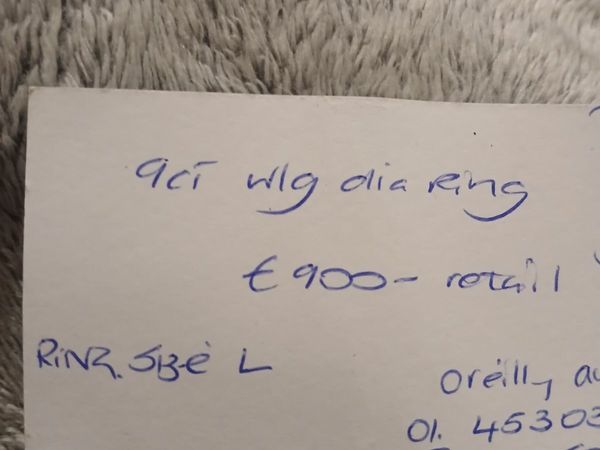 9ct wlg dia ring
€900- retail
RING SIZE L
Oreilly au
01. 45303